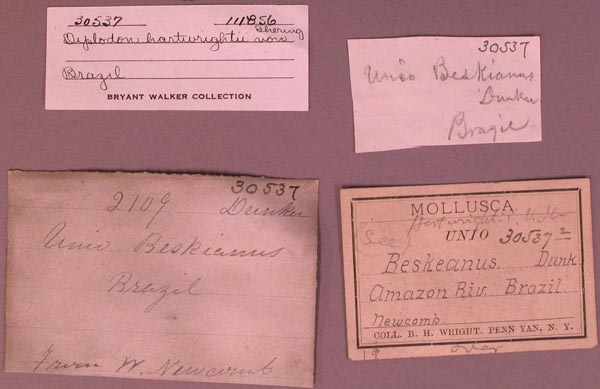 30537 111856
Diplodon hartwrightii von
Ihering
Brazil
BRYANT WALKER COLLECTION
30537
Unio Beskianus
Dunker
Brazil
30537
2109 Dunker
Unio Beskianus
Brazil
From W. Newcomb
MOLLUSCA
(See
UNIO 30537
Beskeanus. Dunk
Amazon Riv. Brazil
Newcomb.
COLL. B. H. WRIGHT. PENN YAN, N. Y.
over